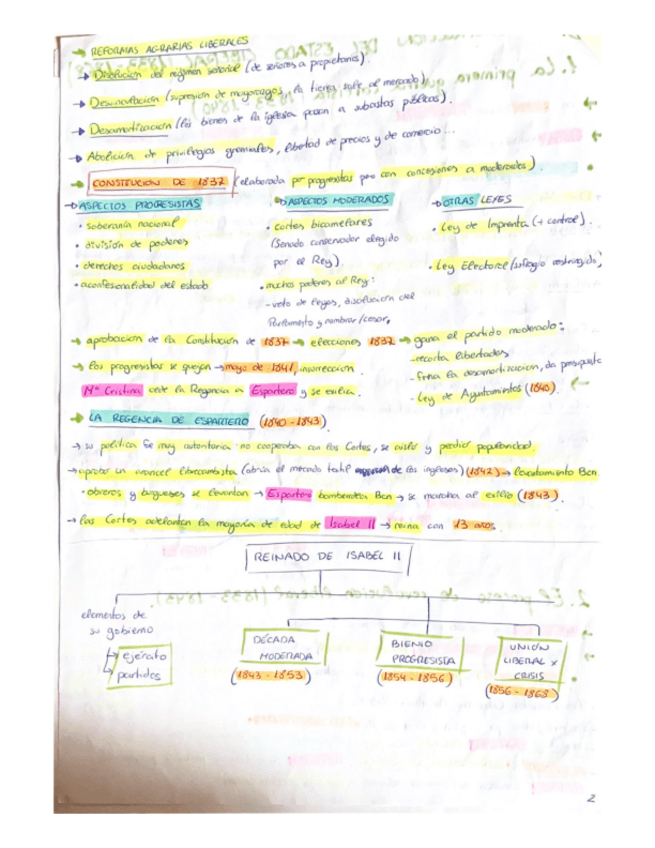 → REFORMAS AGRARIAS LIBERALES
→ Disolución del régimen señorial (de señores a propietarios).
→ Desvinculación (supresión de mayorazgos, la tierra sale al mercado).
→ Desamortización (los bienes de la iglesia pasan a subastas públicas).
→ Abolición de privilegios gremiales, libertad de precios y de comercio...
→ CONSTITUCIÓN DE 1837 (elaborada por progresistas pero con concesiones a moderados).
→ ASPECTOS PROGRESISTAS
· soberanía nacional
· división de poderes
· derechos ciudadanos
· aconfesionalidad del estado
→ ASPECTOS MODERADOS
· cortes bicamerares
(Senado conservador elegido
por el Rey).
· muchos poderes al Rey:
- veto de leyes, disolución del
Parlamento y nombrar/cesar.
→ OTRAS LEYES
· Ley de Imprenta (+ control).
· Ley Electoral (sufragio restringido)
→ aprobación de la Constitución de 1837 → elecciones 1837 → gana el partido moderado:
- recorta libertades
→ los progresistas se quejan → mayo de 1841, insurrección.
- frena la desamortización, da presupuesto
Mª Cristina cede la Regencia a Espartero y se exilia.
- Ley de Ayuntamientos (1840).
→ LA REGENCIA DE ESPARTERO (1840-1843).
→ su política fue muy autoritaria: no cooperaba con las Cortes, se aisló y perdió popularidad.
→ aprobó un arancel librecambista (abría el mercado textil de los ingleses) (1842) → levantamiento Bcn
· obreros y burgueses se levantan → Espartero bombardea Bcn → se marcha al exilio (1843).
→ las Cortes adelantan la mayoría de edad de Isabel II → reina con 13 años.
REINADO DE ISABEL II
elementos de
su gobierno
→ ejército
→ partidos
DÉCADA
MODERADA
(1843-1853)
BIENIO
PROGRESISTA
(1854-1856)
UNIÓN
LIBERAL Y
CRISIS
(1856-1868)
2